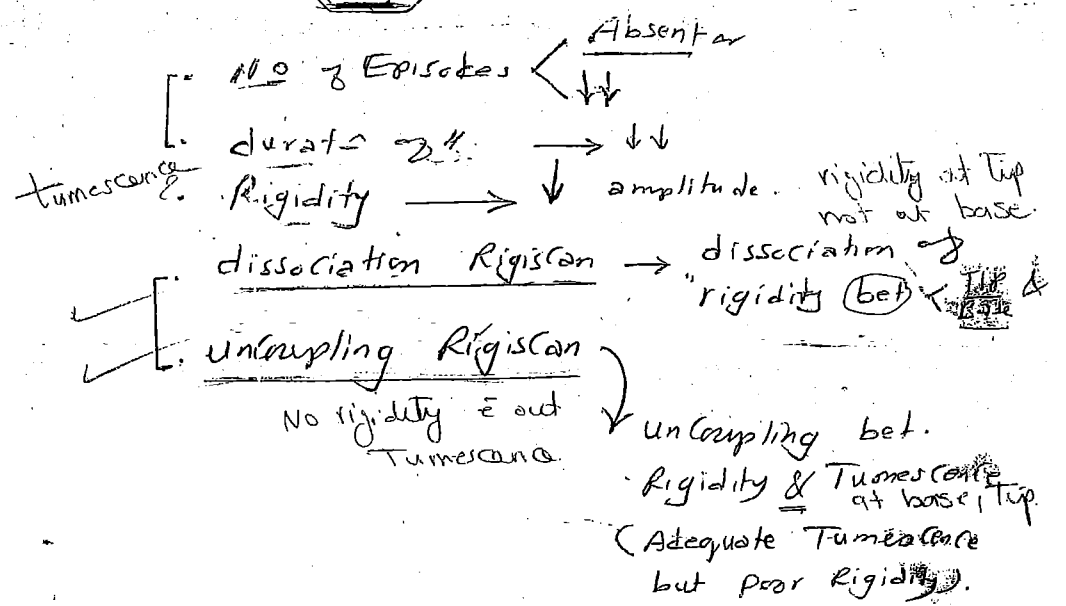 No of Episodes < Absent or
↓↓
durat= of " → ↓↓
tumescence
Rigidity → ↓ amplitude. rigidity at Tip
not at base.
dissociation RigisCan → dissociation of
"rigidity bet < Tip &
Base
unCoupling RigisCan
No rigidity c̄ out
Tumescence
unCoupling bet.
Rigidity & Tumescence
at base, Tip.
(Adequate Tumescence
but poor Rigidity).